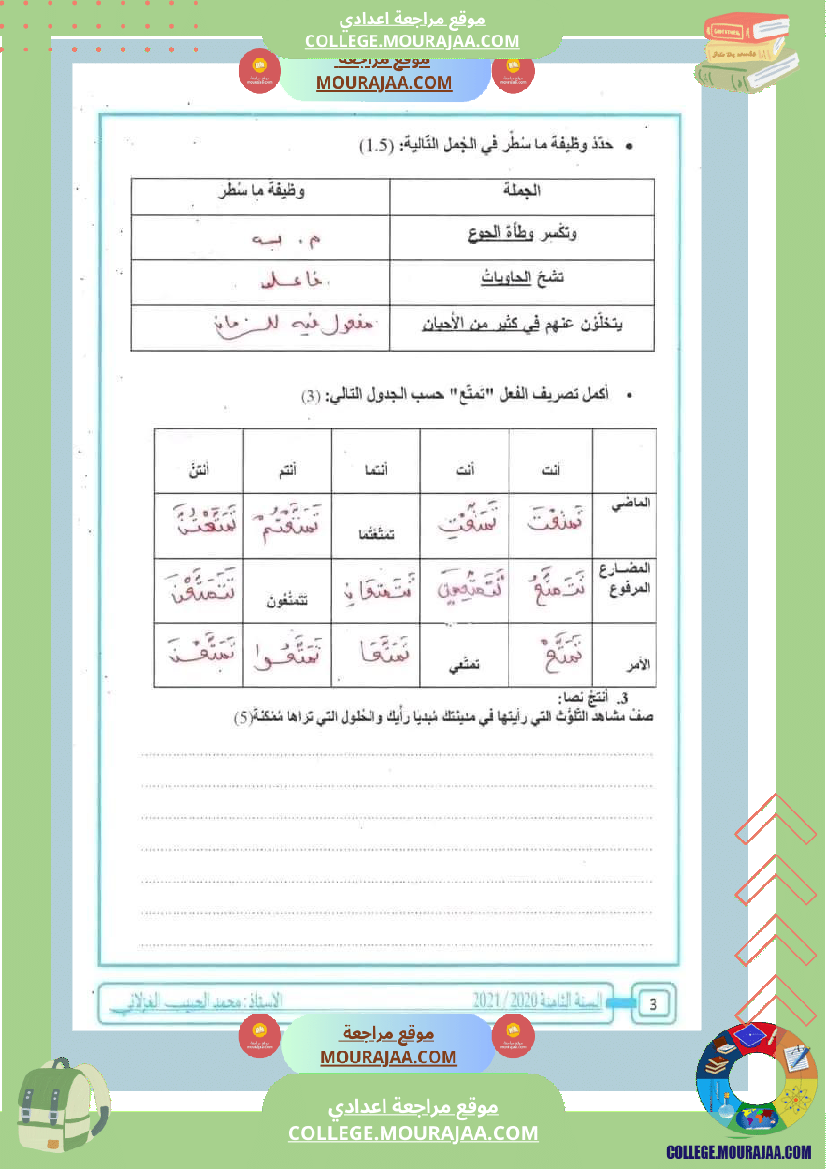 موقع مراجعة اعدادي
COLLEGE.MOURAJAA.COM
موقع مراجعة
MOURAJAA.COM
• حدّد وظيفة ما سُطّر في الجُمل التّالية: (1.5)
الجملة وظيفة ما سُطّر
وتكْسر وطأة الجوع م. به
تشحّ الحاوياتُ فاعل
يتخلّوْن عنهم في كثير من الأحيان مفعول فيه للزمان
• أكمل تصريف الفعل "تَمتّع" حسب الجدول التالي: (3)
أنت أنت أنتما أنتم أنتنّ
الماضي تَمَتَّعْتَ تَمَتَّعْتِ تمتّعْتُما تَمَتَّعْتُمْ تَمَتَّعْتُنَّ
المضارع المرفوع تَتَمَتَّعُ تَتَمَتَّعِينَ تَتَمَتَّعَانِ تتَمتّعُون تَتَمَتَّعْنَ
الأمر تَمَتَّعْ تمتّعي تَمَتَّعَا تَمَتَّعُوا تَمَتَّعْنَ
3. أنتجُ نصا:
صفْ مشاهد التّلوّث التي رأيتها في مدينتك مُبديا رأيك والحُلول التي تراها مُمْكنةً(5)
3
السنة الثامنة 2020/2021
الأستاذ: محمد الحبيب الغزلاني
موقع مراجعة
MOURAJAA.COM
موقع مراجعة اعدادي
COLLEGE.MOURAJAA.COM
COLLEGE.MOURAJAA.COM